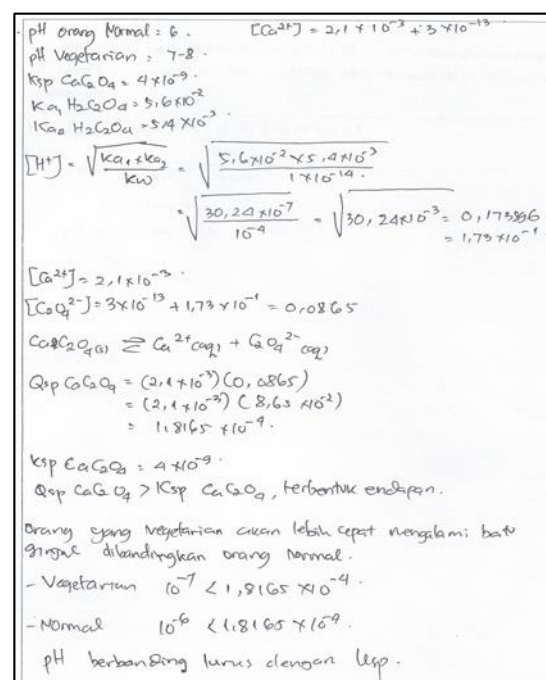 pH orang Normal = 6. [Ca²⁺] = 2,1 × 10⁻³ + 3 × 10⁻¹³
pH Vegetarian = 7-8.
Ksp CaC₂O₄ = 4×10⁻⁹.
Ka₁ H₂C₂O₄ = 5,6×10⁻²
Ka₂ H₂C₂O₄ = 5,4 × 10⁻³
[H⁺] = √(Ka₁ × Ka₂ / Kw) = √(5,6×10⁻² × 5,4×10⁻³ / 1×10⁻¹⁴.)
= √(30,24×10⁻⁷ / 10⁻⁴) = √30,24×10⁻³ = 0,173896
= 1,73×10⁻¹
[Ca²⁺] = 2,1×10⁻³.
[C₂O₄²⁻] = 3×10⁻¹³ + 1,73×10⁻¹ = 0,0865
CaC₂O₄(s) ⇌ Ca²⁺(aq) + C₂O₄²⁻(aq)
Qsp CaC₂O₄ = (2,1×10⁻³)(0,0865)
= (2,1×10⁻³)(8,65×10⁻²)
= 1,8165 ×10⁻⁴.
Ksp CaC₂O₄ = 4×10⁻⁹
Qsp CaC₂O₄ > Ksp CaC₂O₄, terbentuk endapan.
Orang yang vegetarian akan lebih cepat mengalami batu
ginjal dibandingkan orang normal.
- Vegetarian 10⁻⁷ < 1,8165 ×10⁻⁴
- Normal 10⁻⁶ < 1,8165 ×10⁻⁴.
pH berbanding lurus dengan Ksp.